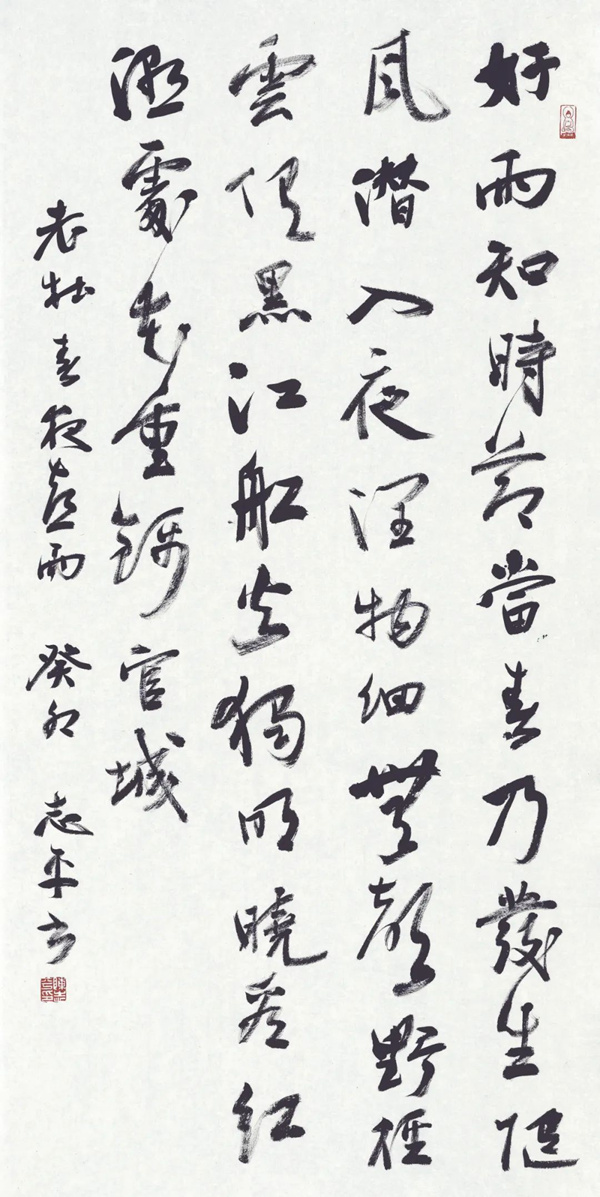 好雨知時節當春乃發生隨
風潜入夜潤物細無聲野徑
雲俱黑江船火獨明曉看紅
濕處花重錦官城
老杜春夜喜雨 癸卯 志平書